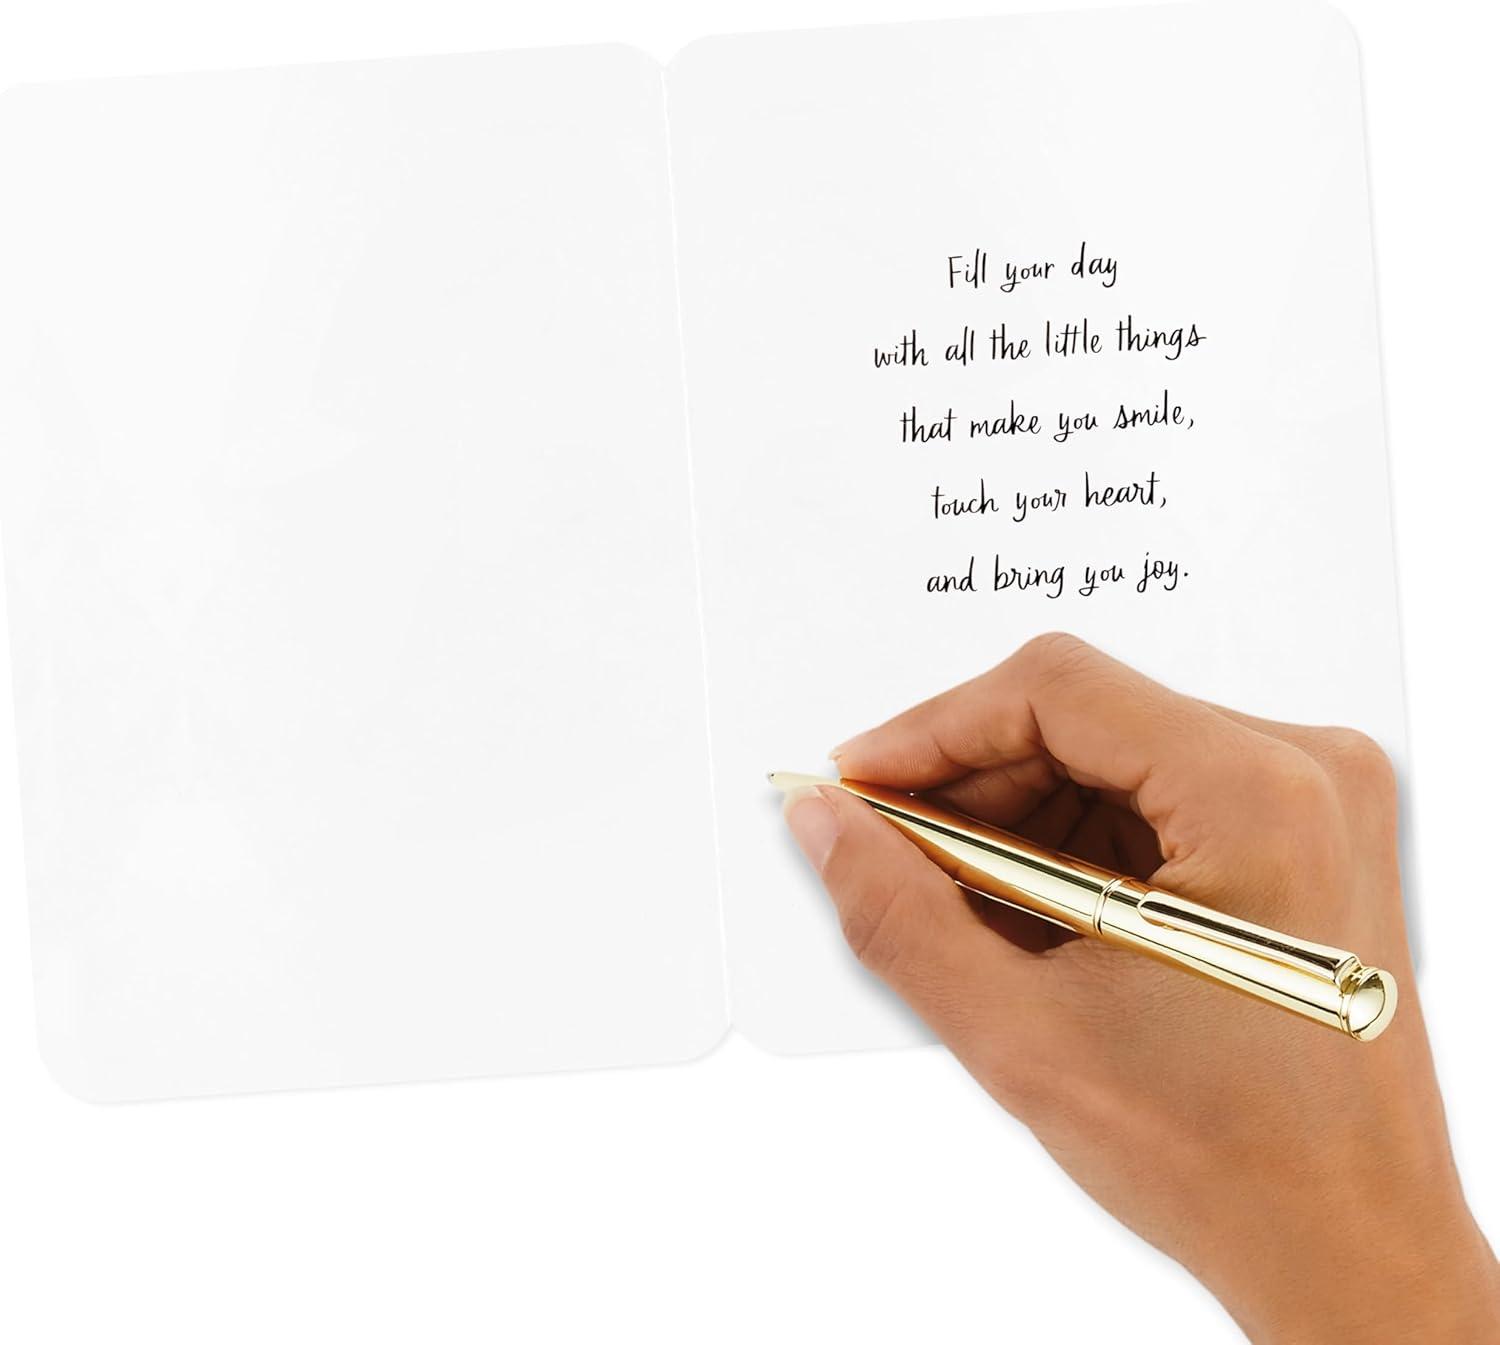 Fill your day
with all the little things
that make you smile,
touch your heart,
and bring you joy.